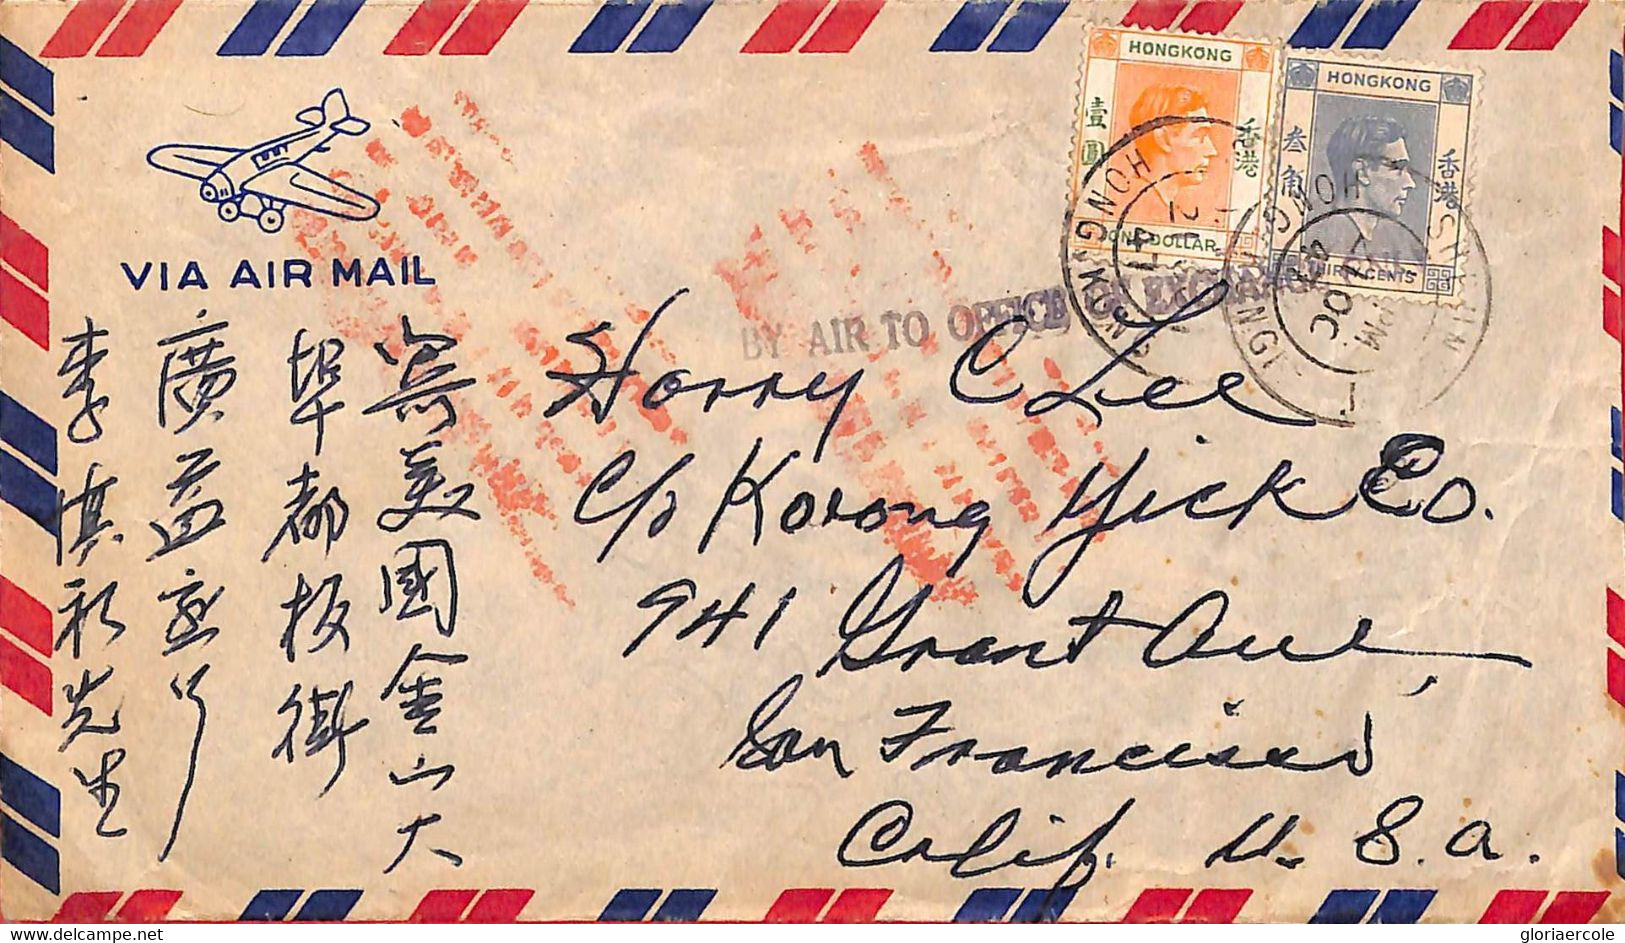 HONGKONG
壹圓
香港
ONE DOLLAR
HONGKONG
叁角
香港
THIRTY CENTS
HONG KONG
VIA AIR MAIL
BY AIR TO OFFICE OF EXCHANGE ONLY
Harry C Lee
C/o Kwong Yick Co.
941 Grant Ave,
San Francisco
Calif. U. S. A.
寄美國金山大
埠都板街
廣益
李淇 先生
gloriaercole